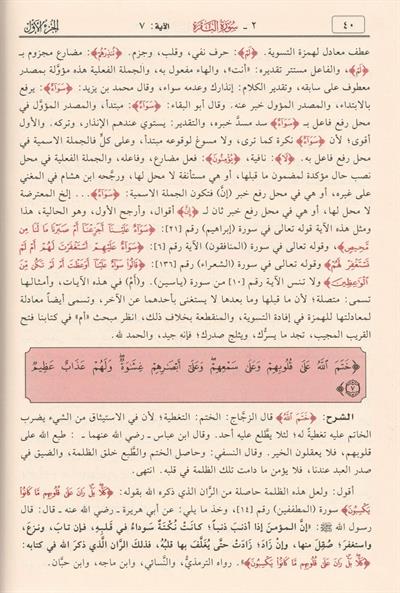 ٤٠
٢ - سُورَةُ البَقَرَة
الآية: ٧
الجزء الأول
عطف معادل لهمزة التسوية. ﴿لَمْ﴾: حرف نفي، وقلب، وجزم. ﴿تُنذِرْهُمْ﴾: مضارع مجزوم بـ
﴿لَمْ﴾، والفاعل مستتر تقديره: «أنت»، والهاء مفعول به، والجملة الفعلية هذه مؤوّلة بمصدر
معطوف على سابقه، وتقدير الكلام: إنذارك وعدمه سواء، وقال محمد بن يزيد: ﴿سَوَآءٌ﴾: يرفع
بالابتداء، والمصدر المؤول خبر عنه. وقال أبو البقاء: ﴿سَوَآءٌ﴾: مبتدأ، والمصدر المؤوَّل في
محل رفع فاعل بـ ﴿سَوَآءٌ﴾ سد مسدَّ خبره، والتقدير: يستوي عندهم الإنذار، وتركه. والأول
أقوى؛ لأن ﴿سَوَآءٌ﴾ نكرة كما ترى، ولا مسوغ لوقوعه مبتدأ، وعلى كلٍّ فالجملة الاسمية في
محل رفع فاعل به. ﴿لَا﴾: نافية، ﴿يُؤْمِنُونَ﴾: فعل مضارع، وفاعله، والجملة الفعلية في محل
نصب حال مؤكدة لمضمون ما قبلها، أو هي مستأنفة لا محل لها، ورجَّحه ابن هشام في المغني
على غيره، أو هي في محل رفع خبر (إنَّ) فتكون الجملة الاسمية: ﴿سَوَآءٌ﴾... إلخ المعترضة
لا محل لها، أو هي في محل رفع خبر ثان لـ ﴿إِنَّ﴾ أقوال، وأرجح الأول، وهو الحالية، هذا
ومثل هذه الآية قوله تعالى في سورة (إبراهيم) رقم [٢١]: ﴿سَوَآءٌ عَلَيْنَآ أَجَزِعْنَآ أَمْ صَبَرْنَا مَا لَنَا مِن
مَّحِيصٍ﴾، وقوله تعالى في سورة (المنافقون) الآية رقم [٦]: ﴿سَوَآءٌ عَلَيْهِمْ أَسْتَغْفَرْتَ لَهُمْ أَمْ لَمْ
تَسْتَغْفِرْ لَهُمْ﴾ وقوله تعالى في سورة (الشعراء) رقم [١٣٦]: ﴿قَالُوا۟ سَوَآءٌ عَلَيْنَآ أَوَعَظْتَ أَمْ لَمْ تَكُن مِّنَ
ٱلْوَٰعِظِينَ﴾ ولا تنس الآية رقم [١٠] من سورة (ياسين). و(أَمْ) في هذه الآيات، وأمثالها
تسمى: متصلة؛ لأن ما قبلها وما بعدها لا يستغنى بأحدهما عن الآخر، وتسمى أيضاً معادلة
لمعادلتها للهمزة في إفادة التسوية، والمنقطعة بخلاف ذلك، انظر مبحث «أم» في كتابنا فتح
القريب المجيب، تجد ما يسرُّك، ويثلج صدرك؛ فإنه جيد، والحمد لله.
﴿خَتَمَ ٱللَّهُ عَلَىٰ قُلُوبِهِمْ وَعَلَىٰ سَمْعِهِمْ ۖ وَعَلَىٰٓ أَبْصَٰرِهِمْ غِشَٰوَةٌ ۖ وَلَهُمْ عَذَابٌ عَظِيمٌ
٧﴾
الشرح: ﴿خَتَمَ ٱللَّهُ﴾ قال الزجَّاج: الختم: التغطية؛ لأن في الاستيثاق من الشيء بضرب
الخاتم عليه تغطيةً له؛ لئلا يطَّلع عليه أحد. وقال ابن عباس ـ رضي الله عنهما ـ: طبع الله على
قلوبهم، فلا يعقلون الخير. وقال النسفي: وحاصل الختم والطَّبع خلق الظلمة، والضيق في
صدر العبد عندنا، فلا يؤمن ما دامت تلك الظلمة في قلبه. انتهى.
أقول: ولعل هذه الظلمة حاصلة من الرَّان الذي ذكره الله بقوله: ﴿كَلَّا ۖ بَلْ ۜ رَانَ عَلَىٰ قُلُوبِهِم مَّا كَانُوا۟
يَكْسِبُونَ﴾ سورة (المطففين) رقم [١٤]، وخذ ما يلي: عن أبي هريرة ـ رضي الله عنه ـ قال: قال
رسول الله ﷺ: «إنَّ المؤمنَ إذا أذنبَ ذنباً؛ كانتْ نُكْتَةٌ سَوداءُ في قَلبِهِ، فَإن تابَ، ونزعَ،
واستغفرَ؛ صُقِلَ منها، وإن زادَ؛ زادَتْ حتَّى يُغلَّفَ بها قلبُهُ، فذلك الرَّان الَّذي ذكر الله في كتابه:
﴿كَلَّا ۖ بَلْ ۜ رَانَ عَلَىٰ قُلُوبِهِم مَّا كَانُوا۟ يَكْسِبُونَ﴾». رواه الترمذيُّ، والنسائي، وابن ماجه، وابن حبَّان.